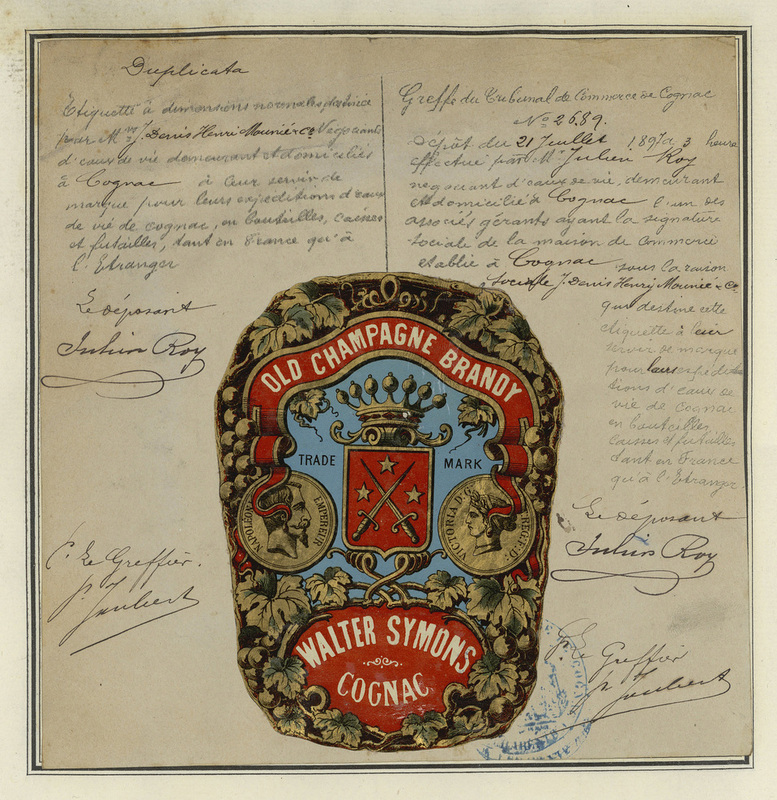 Duplicata
Etiquette à dimensions normales destinée
par MM. J. Denis Henri Mounié & Co Négociants
d'eaux de vie demeurant et domiciliés
à Cognac à leur servir de
marque pour leurs expéditions d'eaux
de vie de cognac, en bouteilles, caisses
et futailles, tant en France qu'à
l'Etranger
Le déposant
Julien Roy
P. Le Greffier.
P. Joubert
Greffe du Tribunal de Commerce de Cognac
No 2689.
Dépôt du 21 Juillet 1897 à 3 heure
effectué par M. Julien Roy
négociant d'eaux de vie, demeurant
et domicilié à Cognac l'un des
associés gérants ayant la signature
sociale de la maison de commerce
établie à Cognac sous la raison
sociale J. Denis Henry Mounié & Co.
qui destine cette
étiquette à leur
servir de marque
pour leurs expédi
tions d'eaux de
vie de cognac
en bouteilles,
caisses et futailles
tant en France
qu'à l'Etranger.
Le déposant
Julien Roy
P. Le Greffier
P. Joubert
OLD CHAMPAGNE BRANDY
TRADE MARK
NAPOLÉON EMPEREUR
VICTORIA D: G: REG: D:
WALTER SYMONS
COGNAC